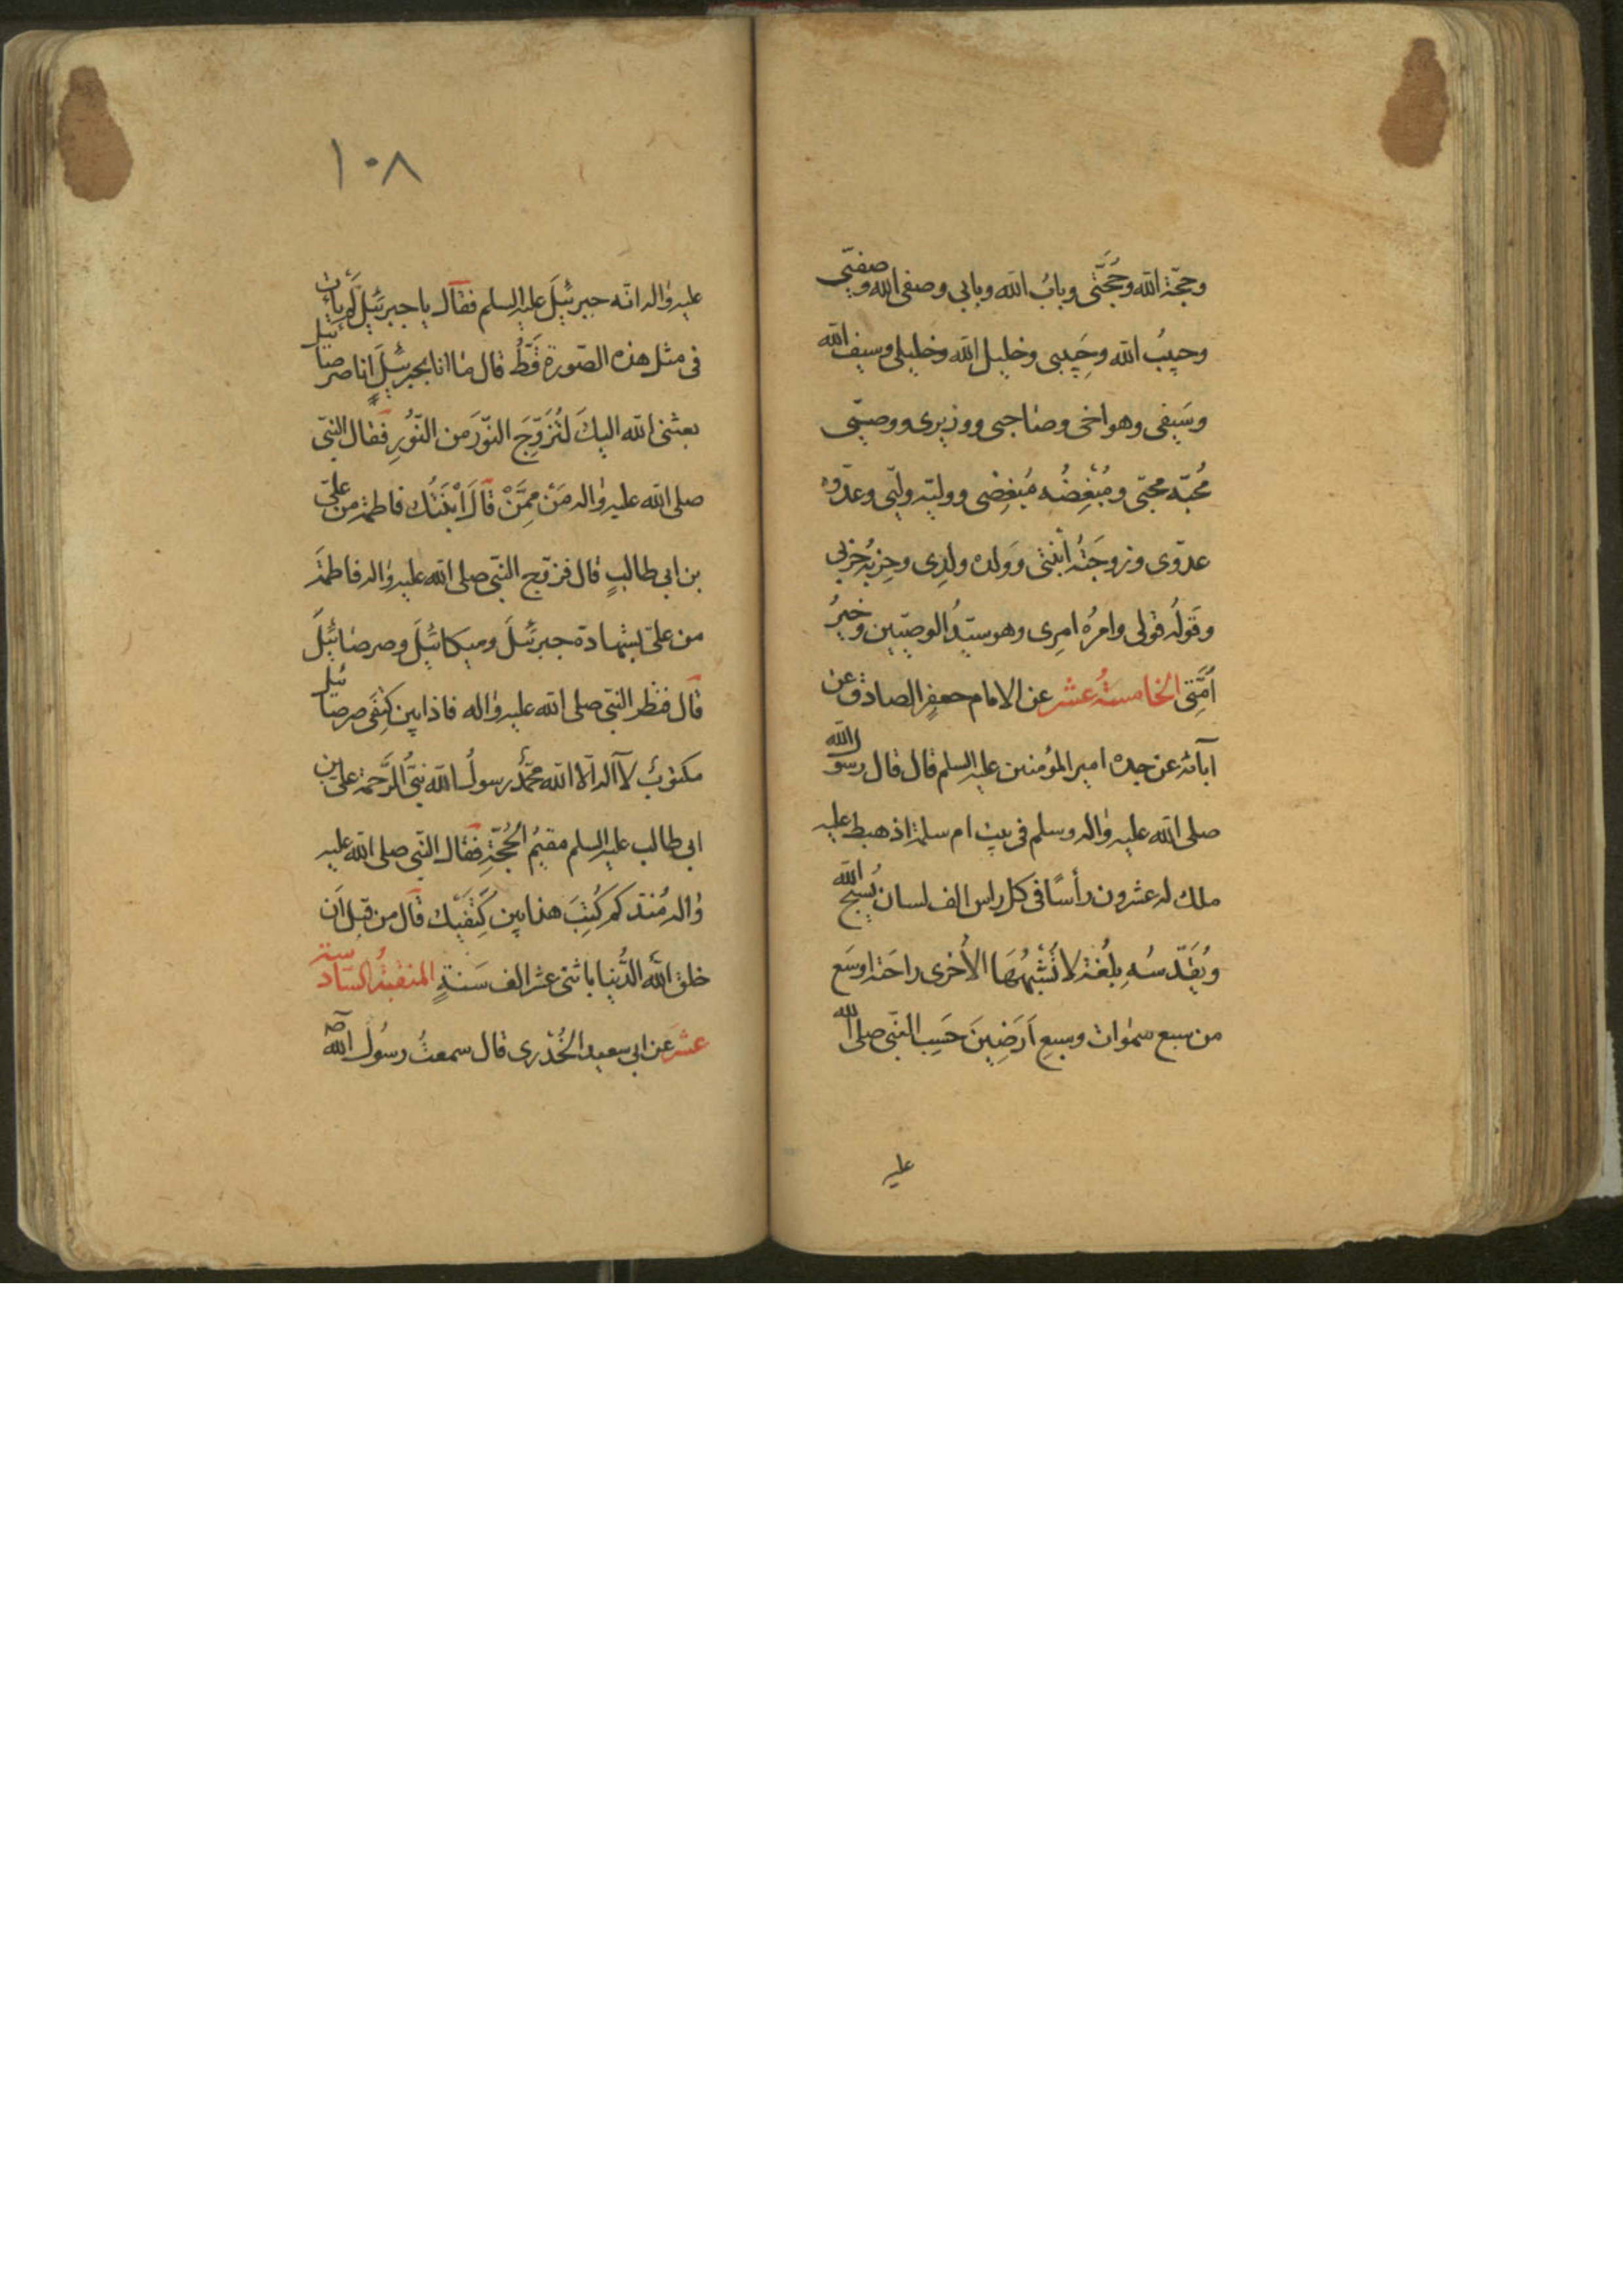 وحجّة الله وحُجَّتى وبابُ الله وبابى وصفى الله وصفيّى
وحبيبُ الله وحَبيبى وخليل الله وخليلى وسيف الله
وسَيفى وهو اخى وصاحبى ووزيرى ووصيّى
مُحبّه محبّى ومُبْغِضُه مُبغِضى ووليّه وليّى وعدّوه
عدّوى وزوجَتُه ابْنتى وَولده ولدِى وحِزبُه حِزبى
وقَولُه قولى وامرُه امرِى وهو سيّدُ الوصيّين وخيرُ
اُمَّتِى الخامسةُ عشر عن الامام جعفرٍ الصادق عن
آبائه عن جده امير المؤمنين عليه السلم قال قال رسول الله
صلى الله عليه وٰاله وسلم فى بيت ام سلمة اذ هبط عليه
ملك له عشرون رأسًا فى كل راس الف لسان يُسبّح الله
ويُقَدّسُه بِلُغة لا تُشْبِهُهَا الاُخرى راحَته اوسَع
من سبع سمٰوات وسبعِ اَرَضِينَ حَسِبَ النبّى صلى الله
عليه
١٠٨
عليه وٰاله انّه جبرئيلَ عليه السلم فقال يا جبرئيلُ لَم يأتِ
فى مثل هذه الصّورة قَطُّ قال مٰا انا بجبرئيلَ انا صرصائيل
بعثنى الله اليكَ لتُزَوِّجَ النّورَ من النّورِ فقال النبّى
صلى الله عليه وٰاله مَنْ مِمَّنْ قٰالَ اِبْنَتُك فاطمةُ من علىّ
بن ابى طالبٍ قال فزوّج النبّى صلى الله عليه وٰاله فاطمةَ
من علىّ بشهادة جبرئيلَ وميكائيلَ وصرصائيلَ
قال فنظر النبّى صلى الله عليه وٰاله فاذا بين كتِفَى صرصائيل
مكتوبٌ لا آله الّا الله محمّدٌ رسولُ الله نبىُّ الرَّحمة علىّ بن
ابى طالب عليه السلم مقيمُ الحُجّةِ فقال النبّى صلى الله عليه
وٰاله مُنذ كم كُتِبَ هذا بين كَتِفَيْك قال من قبل اَن
خلق الله الدُّنيا باثنى عشر الف سَنةٍ المنقبةُ السّادسة
عشرَ عن ابى سعيد الخُدْرى قال سمعتُ رسُولَ الله صَ